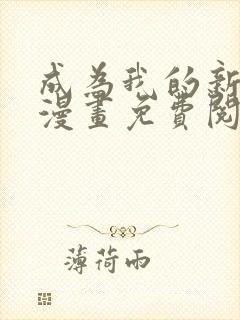 成為我的新
漫畫免費閱
薄荷雨